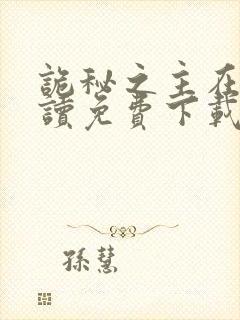 詭秘之主在
讀免費下載
孫慧